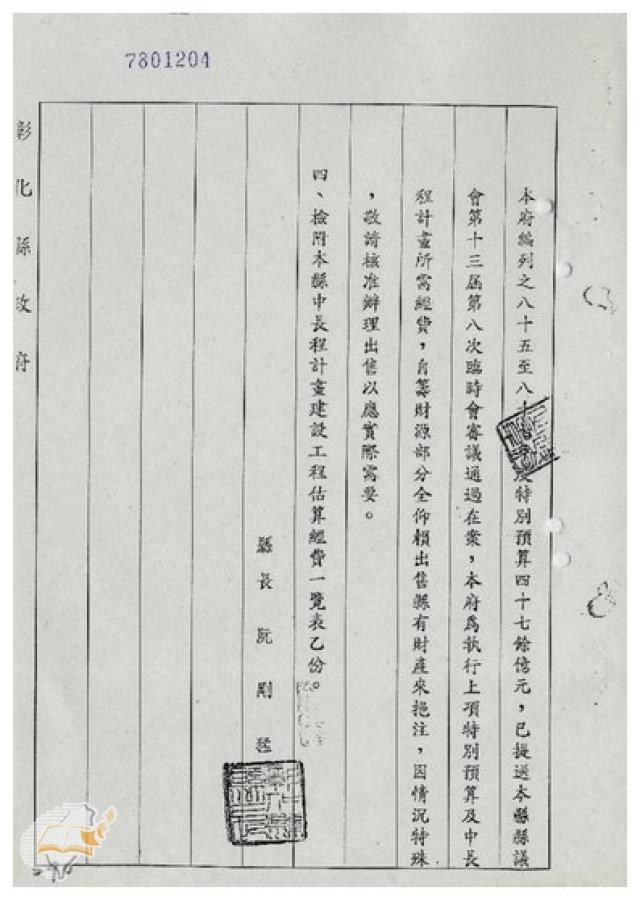 7301204
本府編列之八十五至八十度特別預算四十七餘億元，已提送本縣縣議
會第十三屆第八次臨時會審議通過在案，本府為執行上項特別預算及中長
程計畫所需經費，自籌財源部分全仰賴出售縣有財產來挹注，因情況特殊
，敬請核准辦理出售以應實際需要。
四、檢附本縣中長程計畫建設工程估算經費一覽表乙份。
縣長 阮剛猛
彰化縣政府